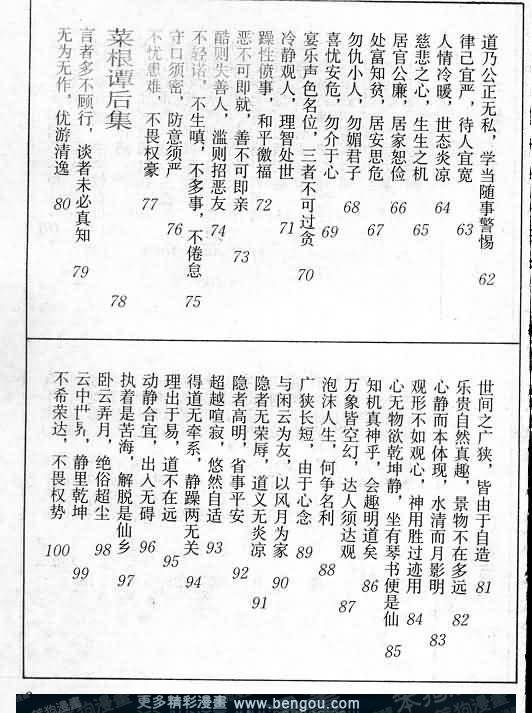 道乃公正无私，学当随事警惕 62
律己宜严，待人宜宽 63
人情冷暖，世态炎凉 64
慈悲之心，生生之机 65
居官公廉，居家恕俭 66
处富知贫，居安思危 67
勿仇小人，勿媚君子 68
喜忧安危，勿介于心 69
宴乐声色名位，三者不可过贪 70
冷静观人，理智处世 71
躁性偾事，和平徼福 72
恶不可即就，善不可即亲 73
酷则失善人，滥则招恶友 74
不轻诺，不生嗔，不多事，不倦怠 75
守口须密，防意须严 76
不忧患难，不畏权豪 77
菜根谭后集 78
言者多不顾行，谈者未必真知 79
无为无作，优游清逸 80
世间之广狭，皆由于自造 81
乐贵自然真趣，景物不在多远 82
心静而本体现，水清而月影明 83
观形不如观心，神用胜过迹用 84
心无物欲乾坤静，坐有琴书便是仙 85
知机真神乎，会趣明道矣 86
万象皆空幻，达人须达观 87
泡沫人生，何争名利 88
广狭长短，由于心念 89
与闲云为友，以风月为家 90
隐者无荣辱，道义无炎凉 91
隐者高明，省事平安 92
超越喧寂，悠然自适 93
得道无牵系，静躁两无关 94
理出于易，道不在远 95
动静合宜，出入无碍 96
执着是苦海，解脱是仙乡 97
卧云弄月，绝俗超尘 98
云中世界，静里乾坤 99
不希荣达，不畏权势 100
更多精彩漫畫 www.bengou.com